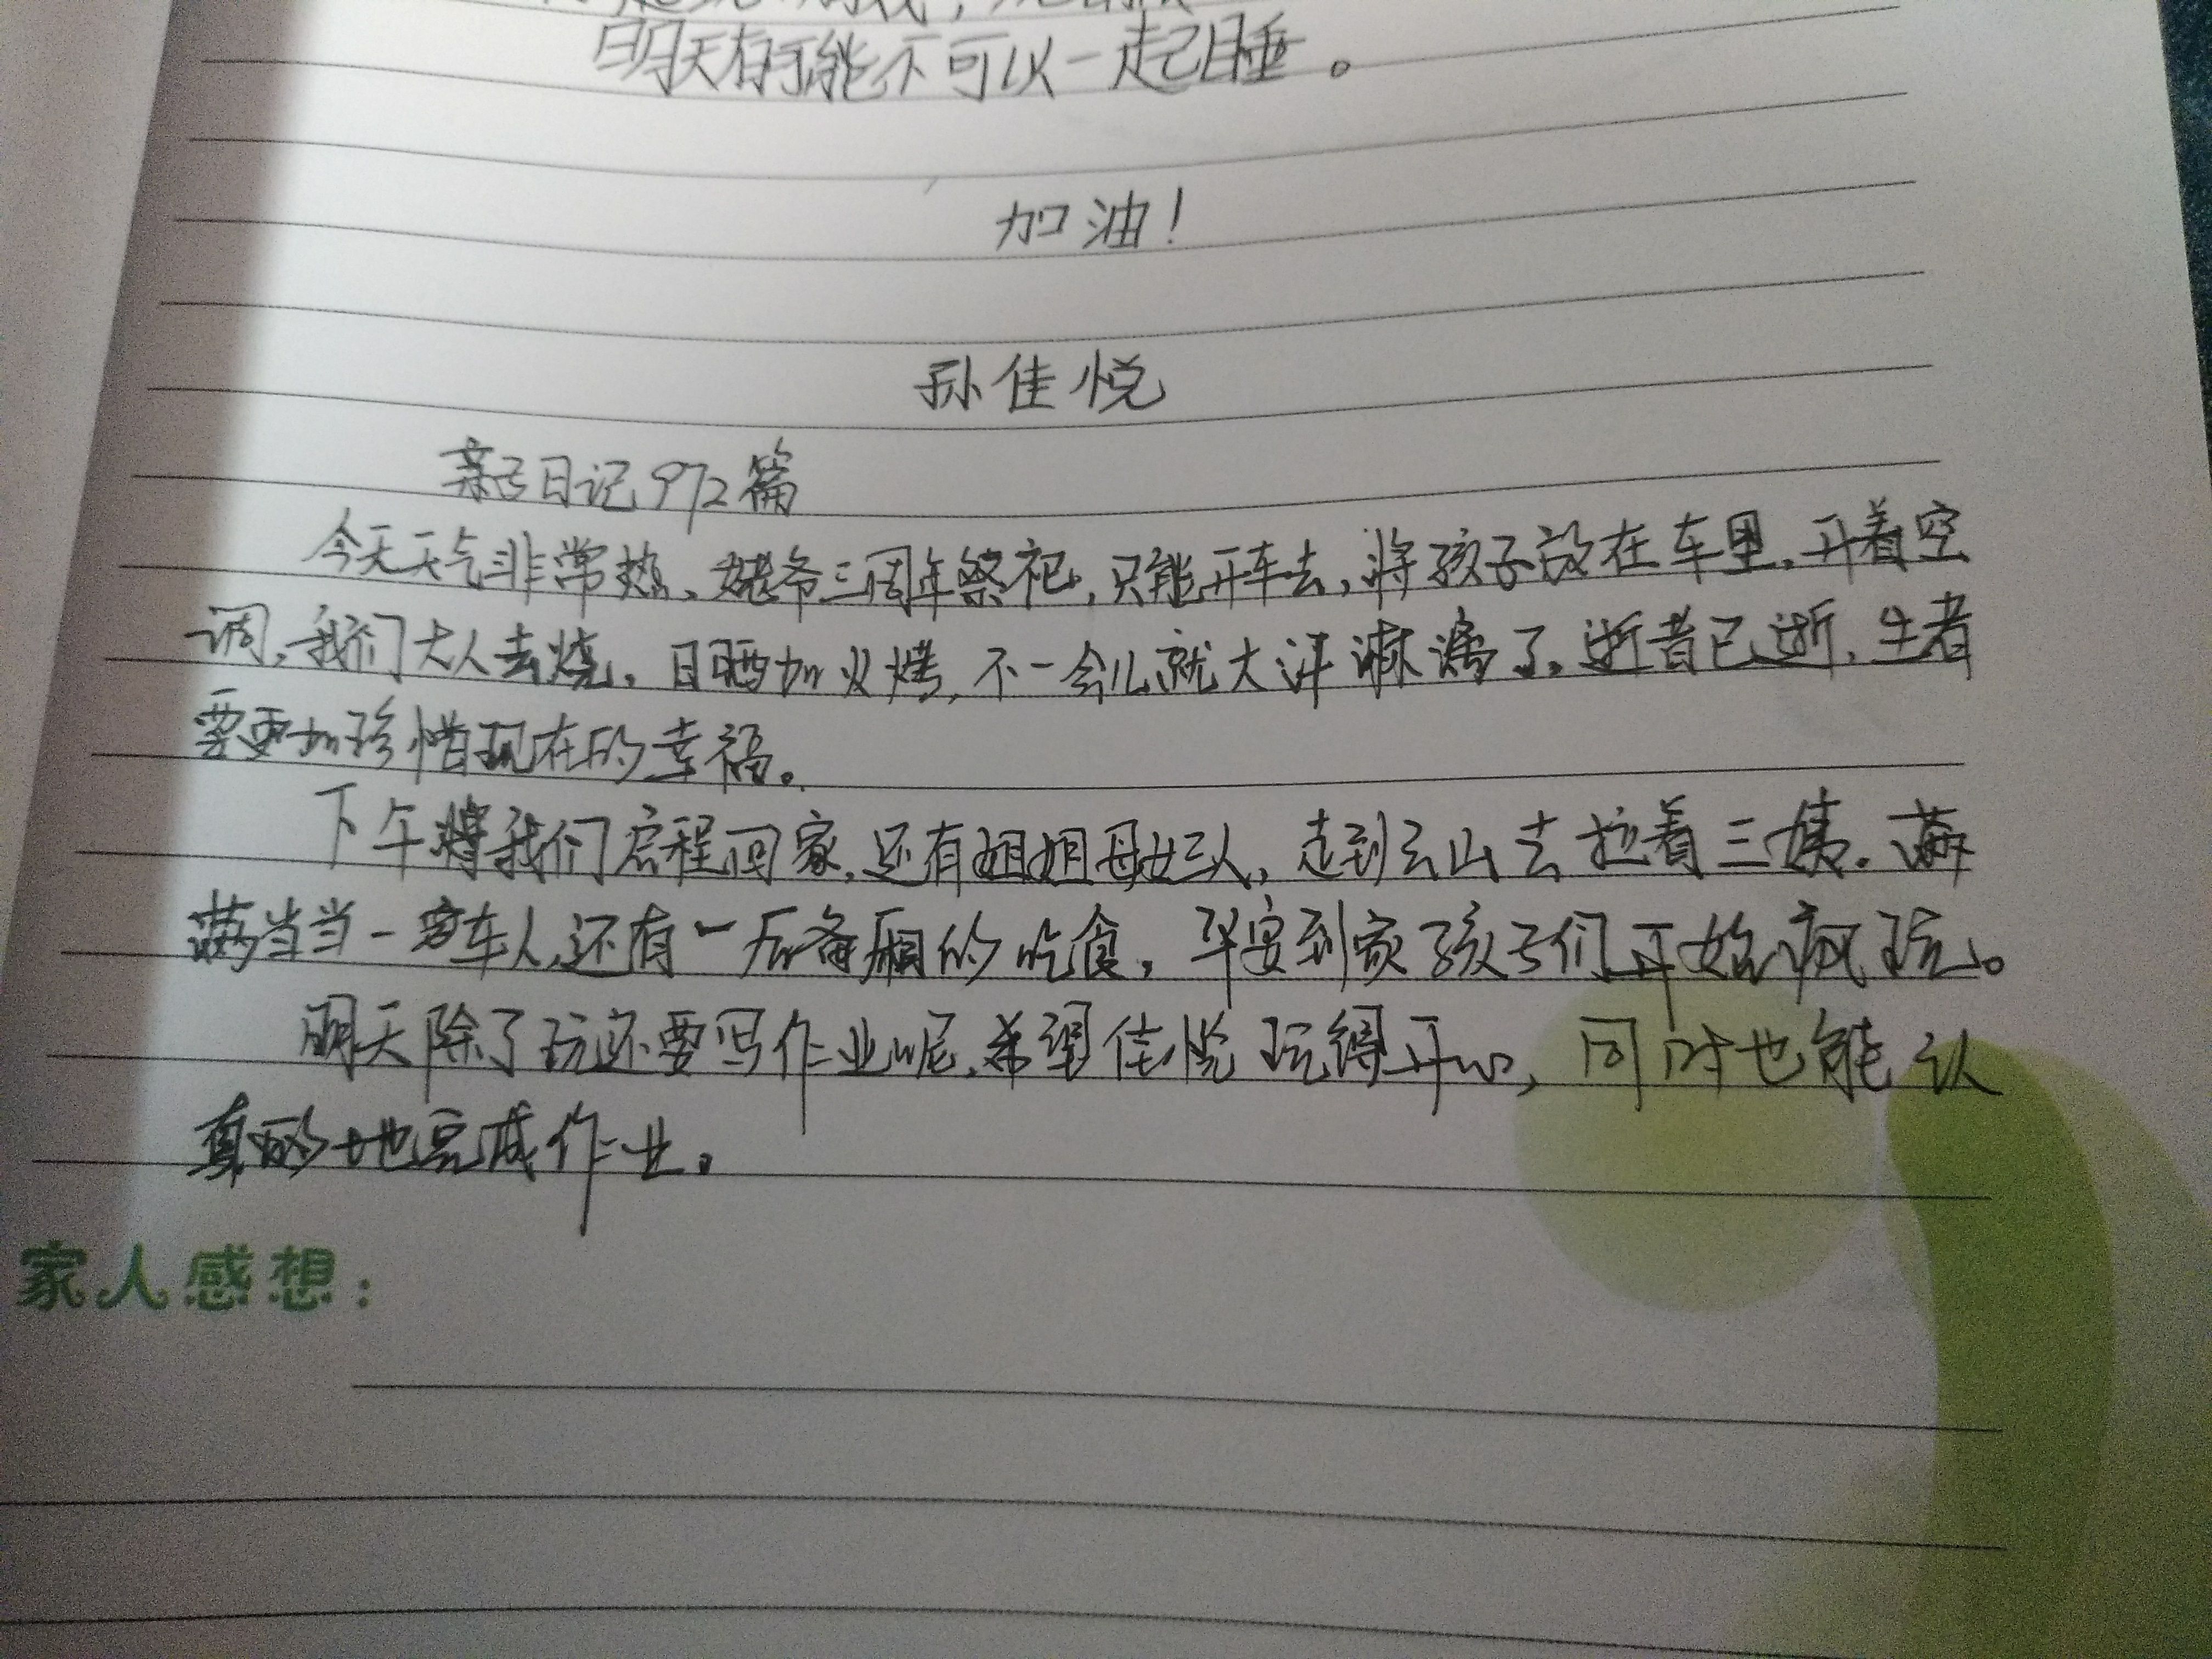 明天有可能不可以一起睡。
加油！
孙佳悦
亲子日记972篇
今天天气非常热、姥爷三周年祭祀，只能开车去，将孩子放在车里，开着空
调，我们大人去烧，日晒加火烤，不一会儿就大汗淋漓了。逝者已逝，生者
要更加珍惜现在的幸福。
下午我们启程回家，还有姐姐母女三人，走到云山去拉着三姨。满
满当当一车人，还有一后备厢的吃食，平安到家孩子们开始疯玩。
明天除了玩还要写作业呢，希望佳悦玩得开心，同时也能认
真的地完成作业。
家人感想：